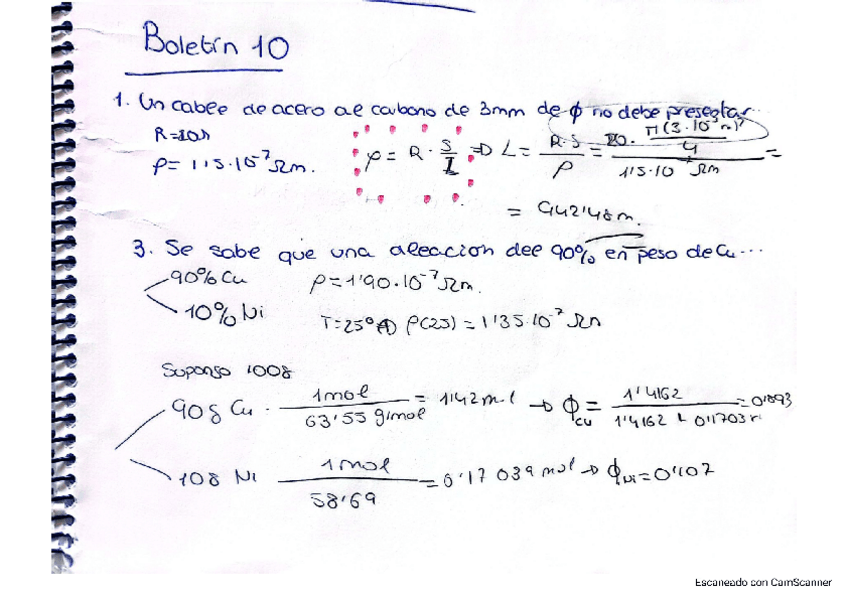 Boletín 10
1. Un cable de acero al carbono de 3mm de ϕ no debe presentar...
R=20Ω
ρ = 1'15·10⁻⁷ Ωm.
ρ = R · S/L ⇒ L = R·S/ρ = 20· π(3·10⁻³m)²/4 / 1'15·10⁻⁷ Ωm =
= 942'48m.
3. Se sabe que una aleación del 90% en peso de Cu...
90% Cu ρ = 1'90·10⁻⁷ Ωm.
10% Ni T=25º ρ(25) = 1'35·10⁻⁷ Ωm
Supongo 100g
90g Cu · 1mol / 63'55 g/mol = 1'42 mol → ϕCu = 1'4162 / 1'4162 + 0'1703 = 0'893
10g Ni 1mol / 58'69 = 0'17039 mol → ϕNi = 0'107
Escaneado con CamScanner